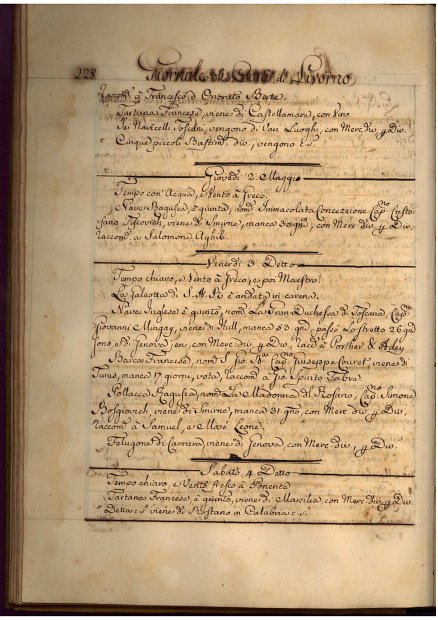 228 Giornale di Livorno
Raccom: à Francesco d' Onorato Berte.
Tartana Francese, viene di Castellamare, con Vino
Sei Navicelli Toscani, vengono di Vari Luoghi, con Merc: div: p Div:
Cinque piccoli Bastim: div:, vengono
Giovedì 2. Maggio
Tempo con Acqua, e Vento à Greco.
Nave Ragusea, è giunta, nom: Immacolata Concezzione Cap:no Cristo
fano viene di Smirne, manca 30 gni, con Merc: div: p Div:
raccom: à Salomone Aghib.
Venerdì 3. Detto
Tempo chiaro, e Vento à Greco, e poi Maestro.
La Galeotta di S. A. R. è andata in carena.
Nave Inglese è giunta, nom: La Gran Duchessa di Toscana Cap:no
Giovanni Mingay, viene di Hull, manca 53. gni, passò lo Stretto 26. gni
sono, e di Genova, con Merc: div: p Div:, racc: à Porther & Arley
Barca Francese, nom: S. Gio: Ba: Cap:no Giuseppe Couret, viene di
Tunis, manca 17 giorni, vota, raccom: à Gio Spirito Fabra.
Pollacca Ragusea, nom: La Madonna del Rosaro, Cap:no Simone
Bosgiovich, viene di Smirne, manca 31. gno, con Merc: div: p Div:,
raccom: à Samuel, e Moise Leone.
Felugone di Carrara, viene di Genova, con Merc: div:, p Div:
Sabato 4 Detto
Tempo chiaro, e Vento fresco à Ponente
Tartana Francese, è giunta, viene di Marsilia, con Merc: div: p Div:
Detta viene di in Calabria